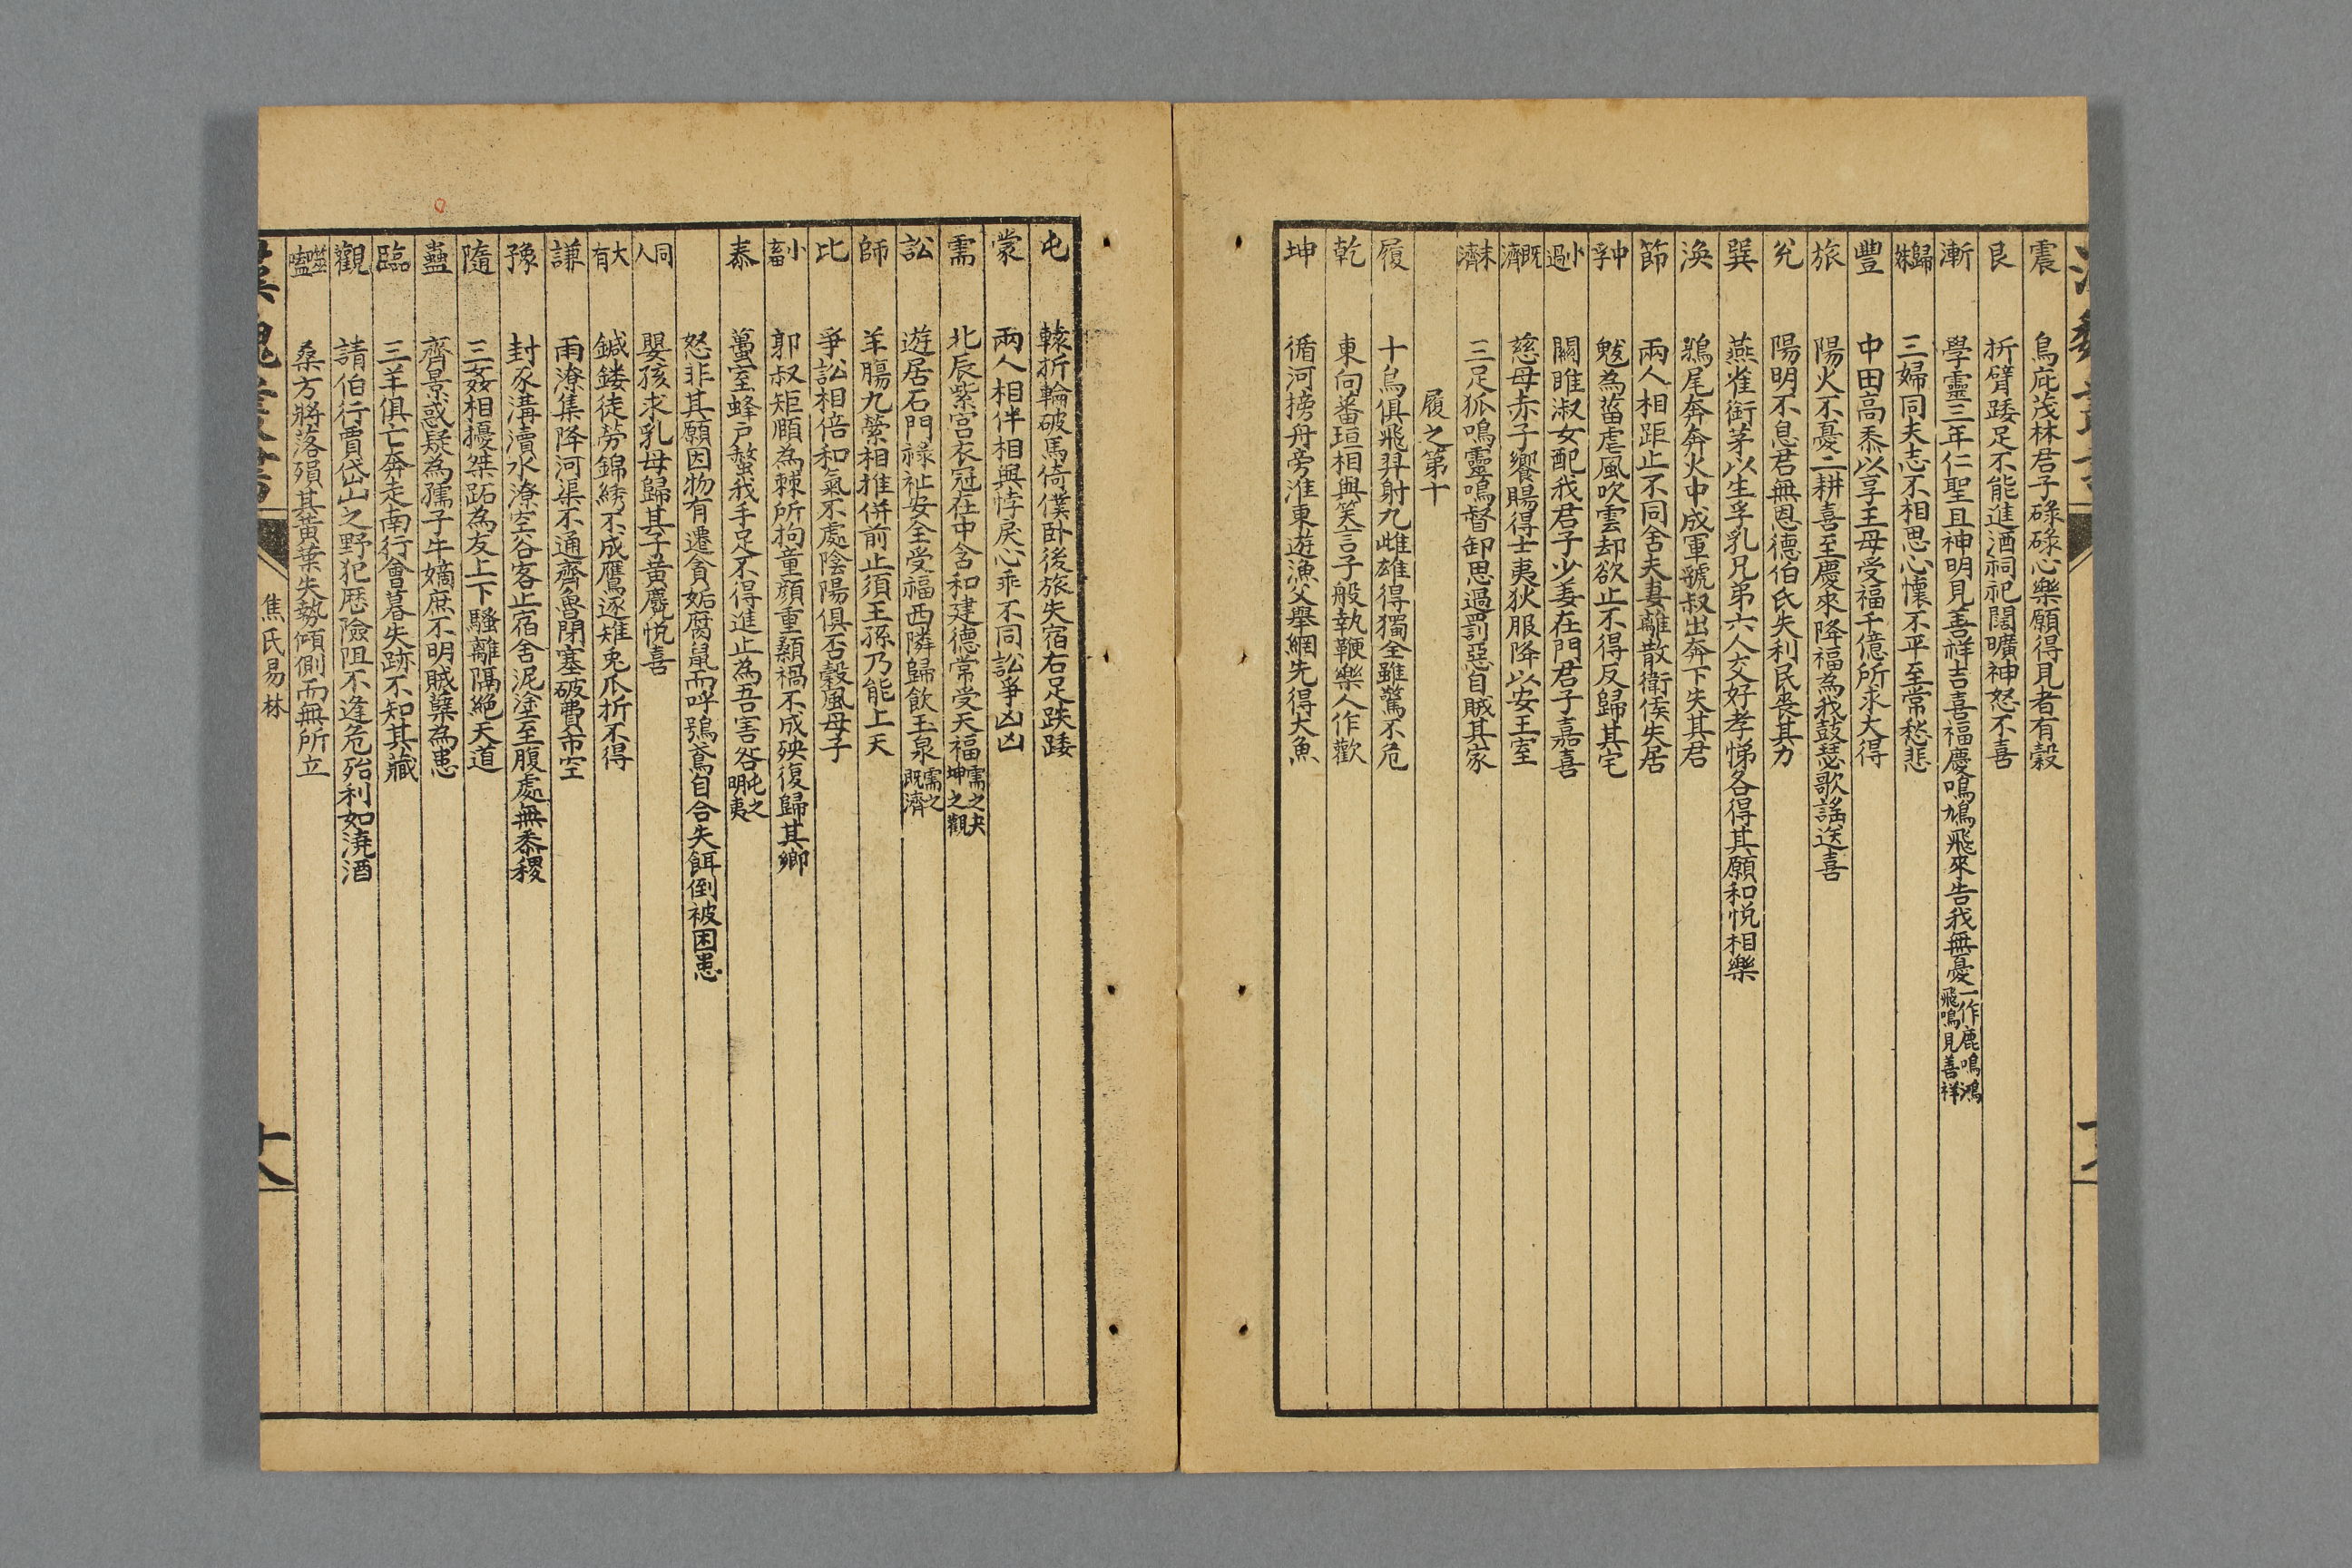 震 鳥庇茂林君子碌碌心樂願得見者有穀
艮 折臂踒足不能進酒祠祀闊曠神怒不喜
漸 學靈三年仁聖且神明見善祥吉喜福慶鳴鳩飛來告我無憂一作鹿鳴鴻飛鳴見善祥
歸妹 三婦同夫志不相思心懷不平至常愁悲
豐 中田高黍以享王母受福千億所求大得
旅 陽火不憂二耕喜至慶來降福為我鼓瑟歌謠送喜
兌 陽明不息君無恩德伯氏失利民喪其力
巽 燕雀銜茅以生孚乳兄弟六人交好孝悌各得其願和悅相樂
渙 鶉尾奔奔火中成軍虢叔出奔下失其君
節 兩人相距止不同舍夫妻離散衛侯失居
中孚 魃為菑虐風吹雲却欲止不得反歸其宅
小過 關雎淑女配我君子少姜在門君子嘉喜
既濟 慈母赤子饗賜得士夷狄服降以安王室
未濟 三足狐鳴靈鳴督卸思過罰惡自賊其家
履之第十
履 十烏俱飛羿射九雌雄得獨全雖驚不危
乾 東向蕃垣相與笑言子般執鞭樂人作歡
坤 循河搒舟旁淮東遊漁父舉網先得大魚
屯 轅折輪破馬倚僕卧後旅失宿右足跌踒
蒙 兩人相伴相與悖戾心乖不同訟爭凶凶
需 北辰紫宮衣冠在中含和建德常受天福需之夬坤之觀
訟 遊居石門祿祉安全受福西隣歸飲玉泉需之既濟
師 羊腸九縈相推併前止須王孫乃能上天
比 爭訟相倍和氣不處陰陽俱否穀風母子
小畜 郭叔矩頤為棘所拘童顏重顙禍不成殃復歸其鄉
泰 蠆室蜂戶螫我手足不得進止為吾害咎屯之明夷
怒非其願因物有遷貪妬腐鼠而呼鵶鳶自合失餌倒被困患
同人 嬰孩求乳母歸其子黃麑悅喜
大有 鍼鏤徒勞錦綉不成鷹逐雉兔爪折不得
謙 雨潦集降河渠不通齊魯閉塞破費市空
豫 封豕溝瀆水潦空谷客止宿舍泥塗至腹處無黍稷
隨 三姦相擾桀跖為友上下騷離隔絕天道
蠱 齊景惑疑為孺子牛嫡庶不明賊孽為患
臨 三羊俱亡奔走南行會暮失跡不知其藏
觀 請伯行賈岱山之野犯歷險阻不逢危殆利如澆酒
噬嗑 桑方將落殞其黃葉失勢傾側而無所立
焦氏易林
十八